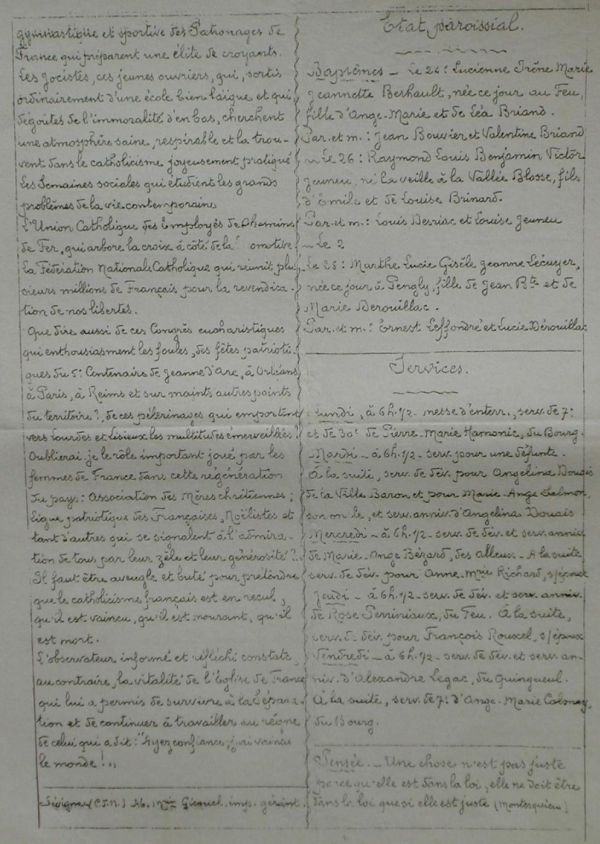 gymnastique et sportive des Patronages de
France qui préparent une élite de croyants.
Les jocistes, ces jeunes ouvriers, qui, sortis
ordinairement d'une école bien laïque et qui,
dégoûtés de l'immoralité d'en bas, cherchent
une atmosphère saine, respirable et la trou-
vent dans le catholicisme joyeusement pratiqué
Les Semaines sociales qui étudient les grands
problèmes de la vie contemporaine
L'Union Catholique des Employés de Chemins
de Fer, qui arbore la croix à côté de la
La Fédération Nationale Catholique qui réunit plu-
sieurs millions de Français pour la revendica-
tion de nos libertés.
Que dire aussi de ces Congrès eucharistiques
qui enthousiasment les foules, des fêtes patrioti-
ques du 5e Centenaire de Jeanne d'Arc, à Orléans
à Paris, à Reims et sur maints autres points
du territoire?, de ces pèlerinages qui emportent
vers Lourdes et Lisieux les multitudes émerveillées?
Oublierai-je le rôle important joué par les
femmes de France dans cette régénération
du pays: Association des Mères chrétiennes;
Ligue patriotique des Françaises, Noëlistes et
tant d'autres qui se signalent à l'admira-
tion de tous par leur zèle et leur générosité?
Il faut être aveugle et buté pour prétendre
que le catholicisme français est en recul,
qu'il est vaincu, qu'il est mourant, qu'il
est mort.
L'observateur informé et réfléchi constate,
au contraire, la vitalité de l'Église de France
qui lui a permis de survivre à la Sépara-
tion et de continuer à travailler au règne
de celui qui a dit: "Ayez confiance, j'ai vaincu
le monde!"
Sévignac (C.D.N.) Gicquel, imp. gérant.
État paroissial.
Baptêmes - Le 24: Lucienne Irène Marie
Jeannette Berhault, née ce jour au Feu,
fille d'Ange-Marie et de Léa Briand.
Par. et m.: Jean Bouvier et Valentine Briand
Le 26: Raymond Louis Benjamin Victor
Jeuneu, né la veille à la Vallée Blosse, fils
d'Emile et de Louise Brinard.
Par. et m.: Louis Desriac et Louise Jeuneu
- Le 2
Le 25: Marthe Lucie Gisèle Jeanne Lécuyer,
née ce jour à Pengly, fille de Jean Bte et de
Marie Dérouillac.
Par. et m.: Ernest Leffondré et Lucie Dérouillac
Services.
Lundi, à 6h.1/2. messe d'enterr., serv. de 7e
et de 30e de Pierre-Marie Hamonic, du Bourg.
Mardi - à 6h.1/2 - serv. pour une défunte.
À la suite, serv. de dév. pour Angelina Douais
de la Ville Baron et pour Marie-Ange
son on le, et serv. anniv. d'Angelina Douais
Mercredi - à 6h.1/2 - serv. de dév. et serv. anniv.
de Marie-Ange Bézard, des Alleux - A la suite
serv. de dév. pour Anne-Marie Richard, s/épouse
Jeudi - à 6h.1/2 - serv. de dév. et serv. anniv.
de Rose Perriniaux, du Feu. À la suite,
serv. de dév. pour François Rouxel, s/époux
Vendredi - à 6h.1/2 - serv. de dév. et serv. an-
niv. d'Alexandre Legac, du Quinqueul.
À la suite, serv. de 7e d'Ange-Marie
du Bourg.
Pensée. - Une chose n'est pas juste
parce qu'elle est dans la loi, elle ne doit être
dans la loi que si elle est juste (Montesquieu)